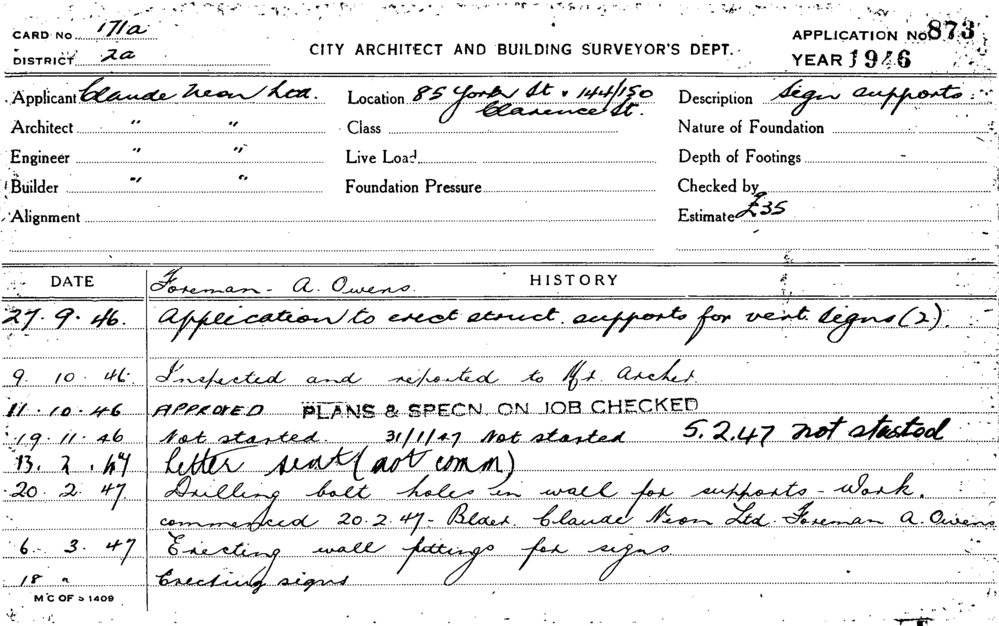 CARD No 171a
DISTRICT 2a
CITY ARCHITECT AND BUILDING SURVEYOR'S DEPT.
APPLICATION No 873
YEAR 1946
Applicant Claude Neon Ltd.
Location 85 York St & 144/150
Clarence St.
Description Sign supports
Architect " "
Class
Nature of Foundation
Engineer " "
Live Load
Depth of Footings -
Builder " "
Foundation Pressure
Checked by
Alignment
Estimate £35
DATE
HISTORY
Foreman - A. Owens.
27. 9. 46. Application to erect struct. supports for vert. signs (2).
9. 10. 46. Inspected and reported to Mr. Archer.
11. 10. 46 APPROVED PLANS & SPECN. ON JOB CHECKED
19. 11. 46 Not started. 31/1/47 Not started 5.2.47 not started
13. 2. 47 Letter sent (not comm)
20. 2. 47 Drilling bolt holes in wall for supports - Work.
commenced 20.2.47 - Blder. Claude Neon Ltd. Foreman A. Owens
6. 3. 47 Erecting wall fittings for signs
18 " Erecting signs
M C OF S 1409